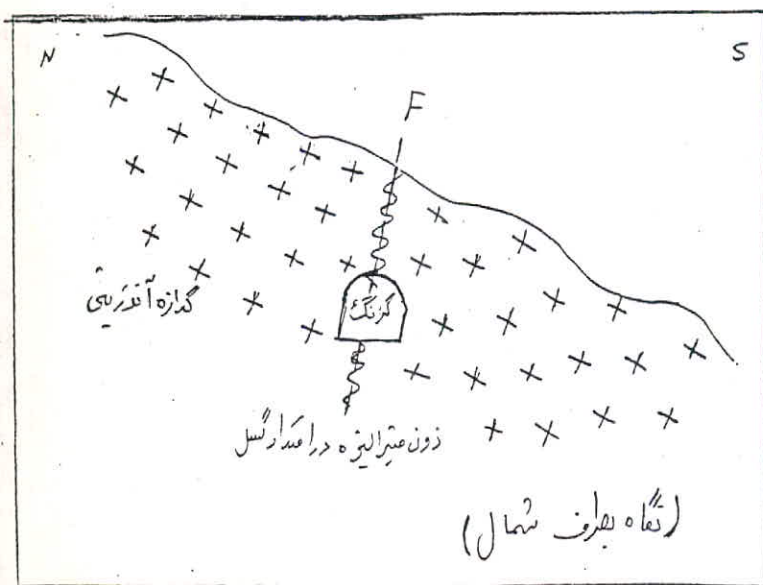 N
S
F
گدازه آندزیتی
گزنگ
زون مینرالیزه در امتداد گسل
(نگاه بطرف شمال)